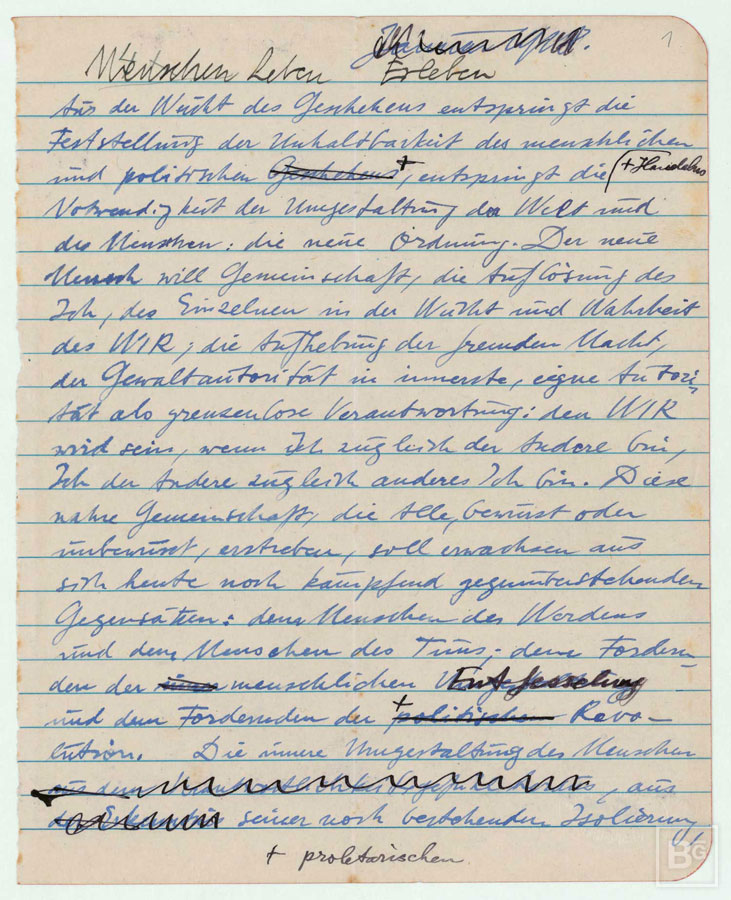 1
Menschen Leben Erleben
Aus der Wucht des Geschehens entspringt die
Feststellung der Unhaltbarkeit des menschlichen
und politischen Geschehens +, entspringt die (+ Handelns
Notwendigkeit der Umgestaltung der Welt und
des Menschen: die neue Ordnung. Der neue
Mensch will Gemeinschaft, die Auflösung des
Ich, des Einzelnen in der Wucht und Wahrheit
des WIR; die Aufhebung der fremden Macht,
der Gewaltautorität in innerste, eigne Autori-
tät als grenzenlose Verantwortung: den WIR
wird sein, wenn Ich zugleich der Andere bin,
Ich der Andere zugleich anderes Ich bin. Diese
wahre Gemeinschaft, die Alle, bewusst oder
unbewusst, erstreben, soll erwachsen aus
sich heute noch kämpfend gegenüberstehenden
Gegensätzen: dem Menschen des Werdens
und dem Menschen des Tuns; dem Fordern-
den der menschlichen Entfesselung
und dem Fordernden der + politischen Revo-
lution. Die innere Umgestaltung des Menschen
aus dem, aus
seiner noch bestehenden Isolierung
+ proletarischen
BG